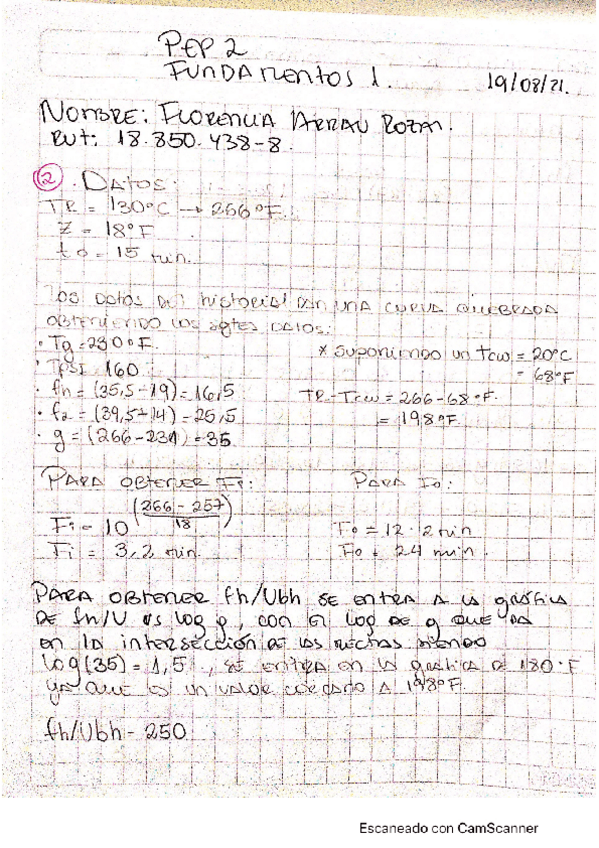 PEP 2
FUNDAMENTOS 1.
19/08/21.
NOMBRE: FLORENCIA ARRAU
RUT: 18.850.438-8.
2. DATOS:
TR = 130°C → 266°F.
Z = 18°F
to = 15 min.
LOS DATOS DEL historial DAN UNA CURVA QUEBRADA
OBTENIENDO LOS sgtes DATOS:
• Tg = 230°F.
* SUPONIENDO UN Tcw = 20°C
= 68°F
• TPSI 160
• fh = (35,5-19) = 16,5
TR-Tcw = 266-68°F.
= 198°F.
• f2 = (39,5-14) = 25,5
• g = (266-231) = 35
PARA OBTENER Fi:
PARA Fo:
Fi = 10 ((266 - 257)/18)
Fo = 12 · 2 min
Fi = 3,2 min.
Fo = 24 min.
PARA OBTENER fh/Ubh SE ENTRA A LA gráfica
DE fh/U vs LOG g, CON EL LOG DE g QUE DA
EN LA INTERSECCIÓN DE LAS RECTAS SIENDO
LOG(35) = 1,5, SE ENTRA EN LA GRÁFICA DE 180°F
YA QUE ES UN VALOR CERCANO A 198°F.
fh/Ubh = 250
Escaneado con CamScanner